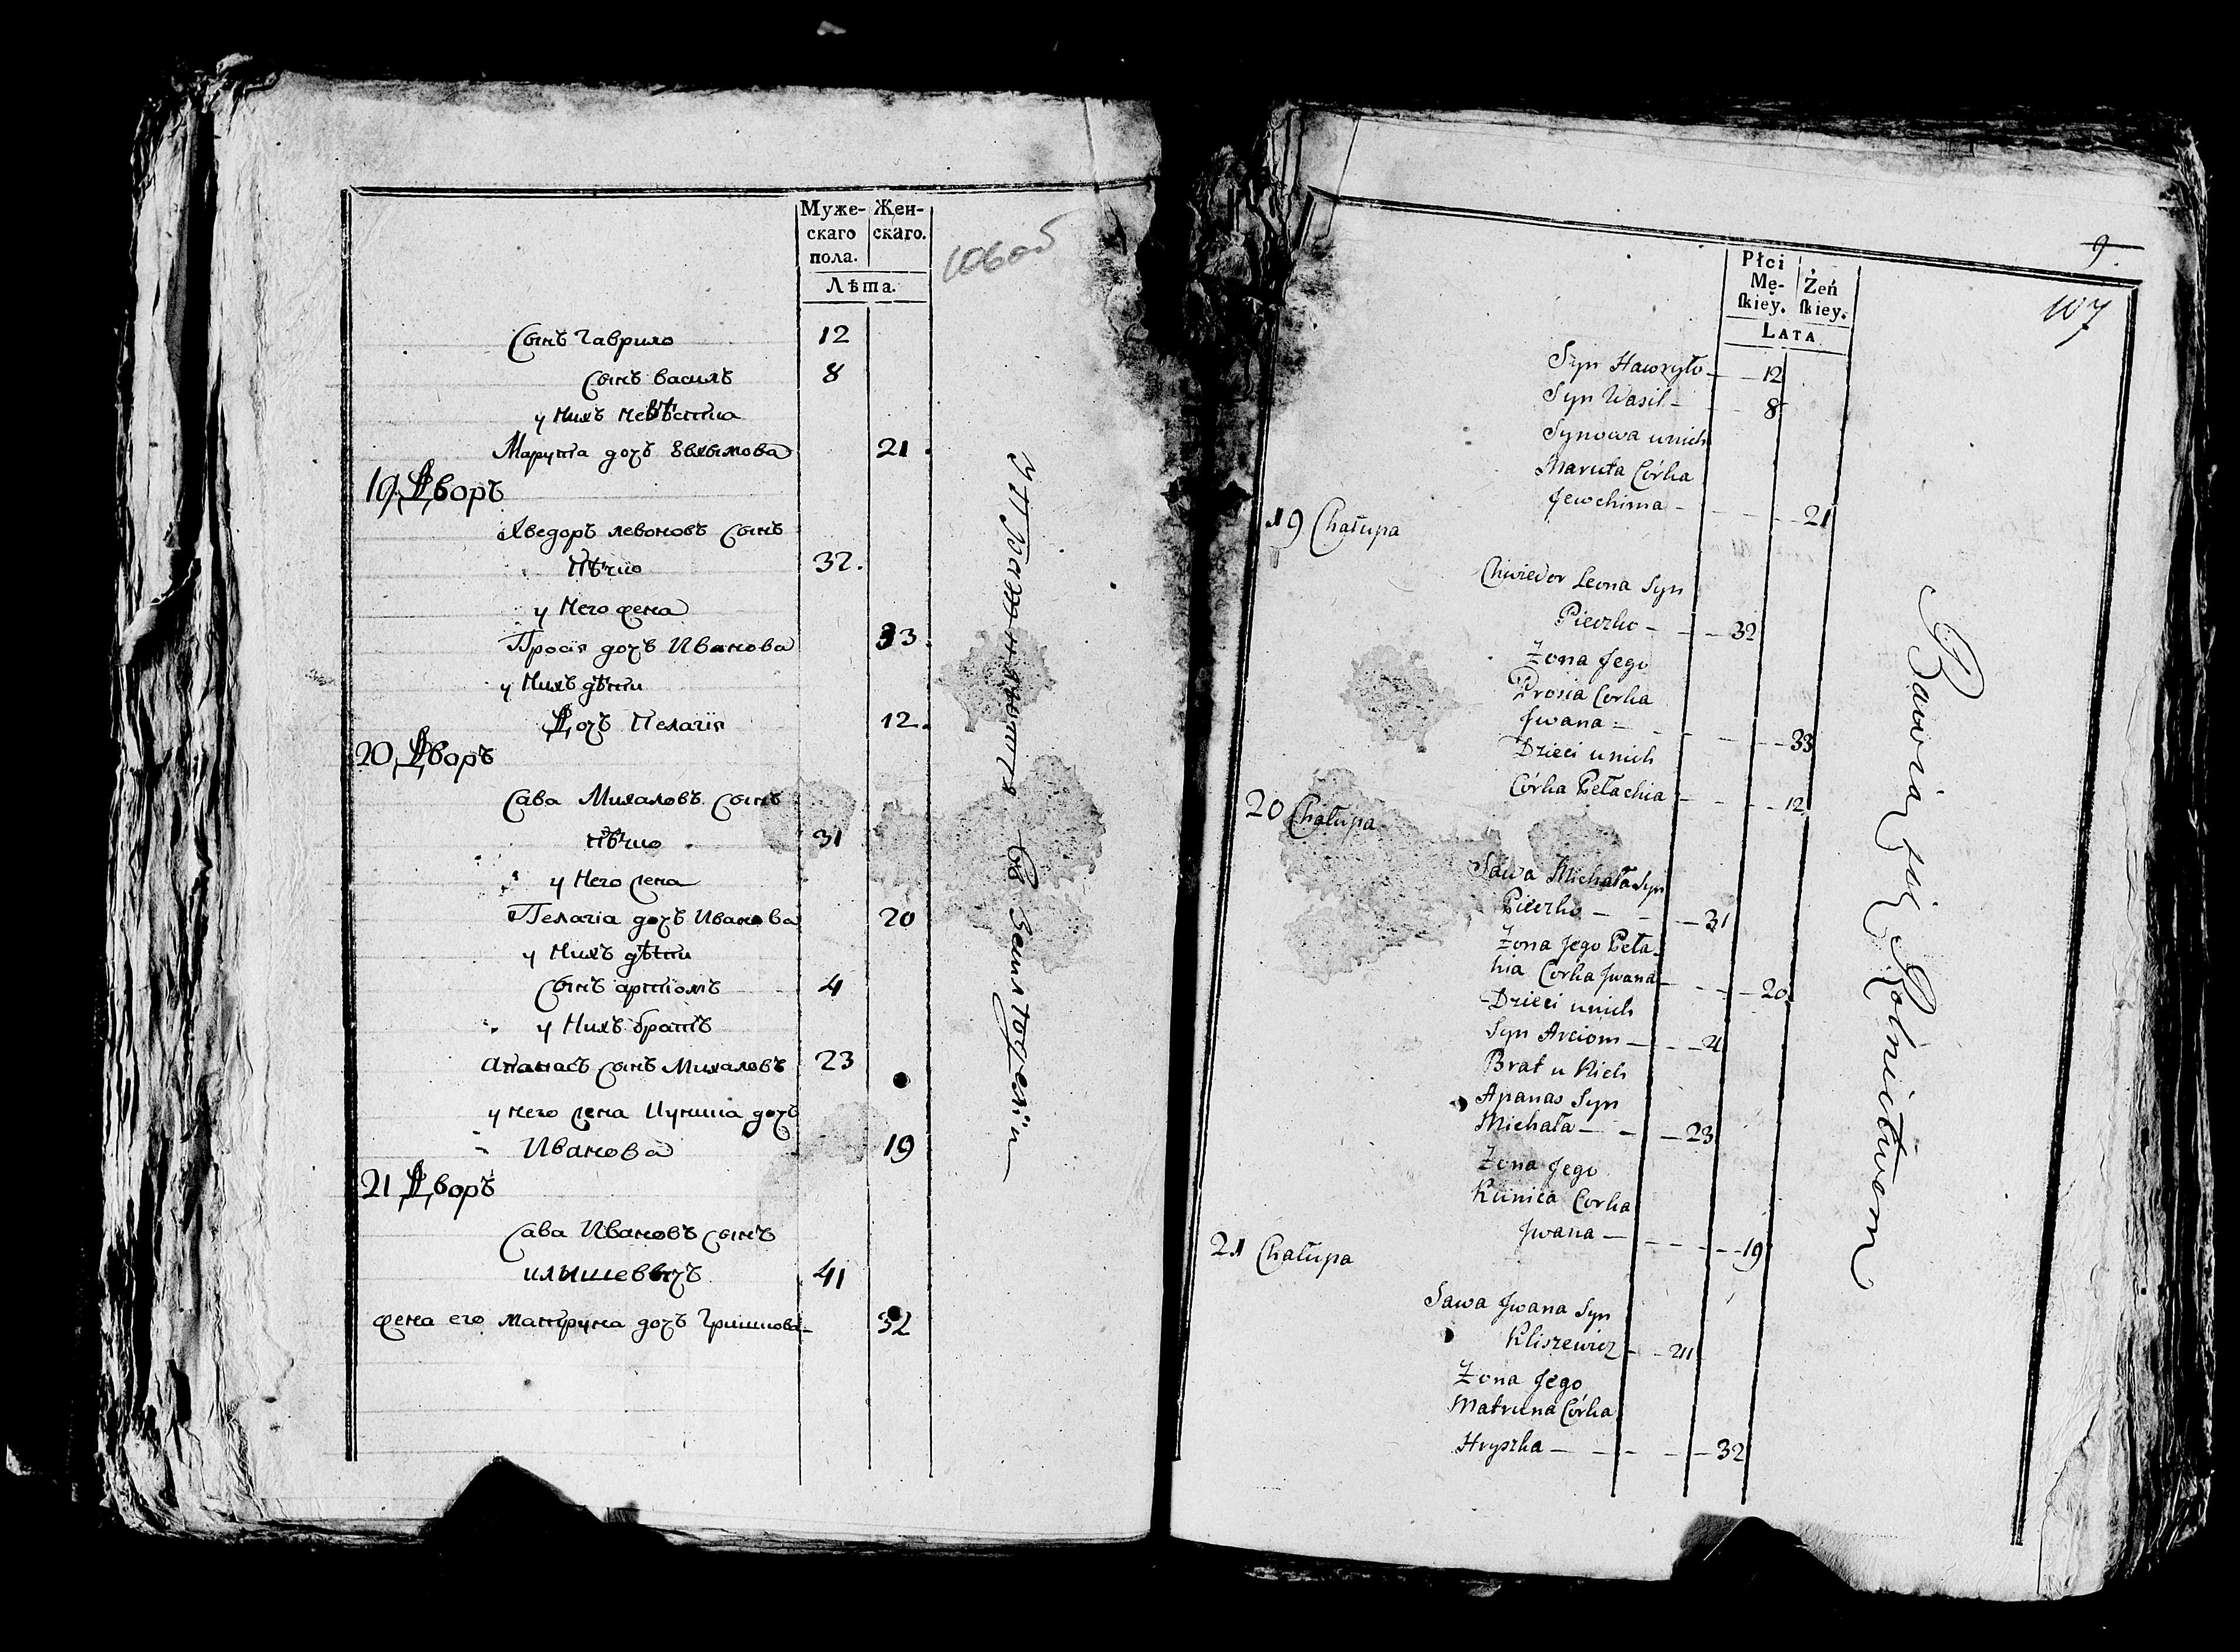 Муже-
скаго
пола.
Жен-
скаго.
Лѣта.
106 об
Сынъ Гаврило 12
Сынъ Василъ 8
у Нихъ невѣстка
Марута дочъ Евхимова 21
19 Дворъ
Хведоръ левоновъ Сынъ
Пѣчко 32.
у Него жена
Прося дочъ Иванова 33.
у Нихъ дѣти
Дочъ Пелагія 12.
20 Дворъ
Сава Михаловъ Сынъ
Пѣчко 31
у Него жена
Пелагіа дочъ Иванова 20
у Нихъ дѣти
Сынъ артіомъ 4
у Нихъ братъ
апанасъ сынъ Михаловъ 23
у него жена Куница дочъ
Иванова 19
21 Дворъ
Сава Ивановъ сынъ
клышевычъ 41
жена его матруна дочъ Гришкова 32
упражняютця въ
9
107
Płci
Mę-
skiey.
Żeń
skiey.
LATA
Syn Hawryło 12
Syn Wasil 8
Synowa unich
Maruta Córka
Jewchima 21
19 Chałupa
Chwiedor Leona Syn
Pieczko 32
Żona Jego
Prosia Corka
Jwana 33
Dzieci unich
Córka Pełachia 12
20 Chałupa
Sawa Michała Syn
Pieczko 31
Żona Jego Peła-
hia Corka Jwana 20
Dzieci unich
Syn Arciom 4
Brat u Nich
Apanas Syn
Michała 23
Żona Jego
Kunica Corka
Jwana 19
21 Chałupa
Sawa Jwana Syn
Kliszewicz 41
Żona Jego
Matruna Córka
Hryszka 32
Bawią się Rolnictwem